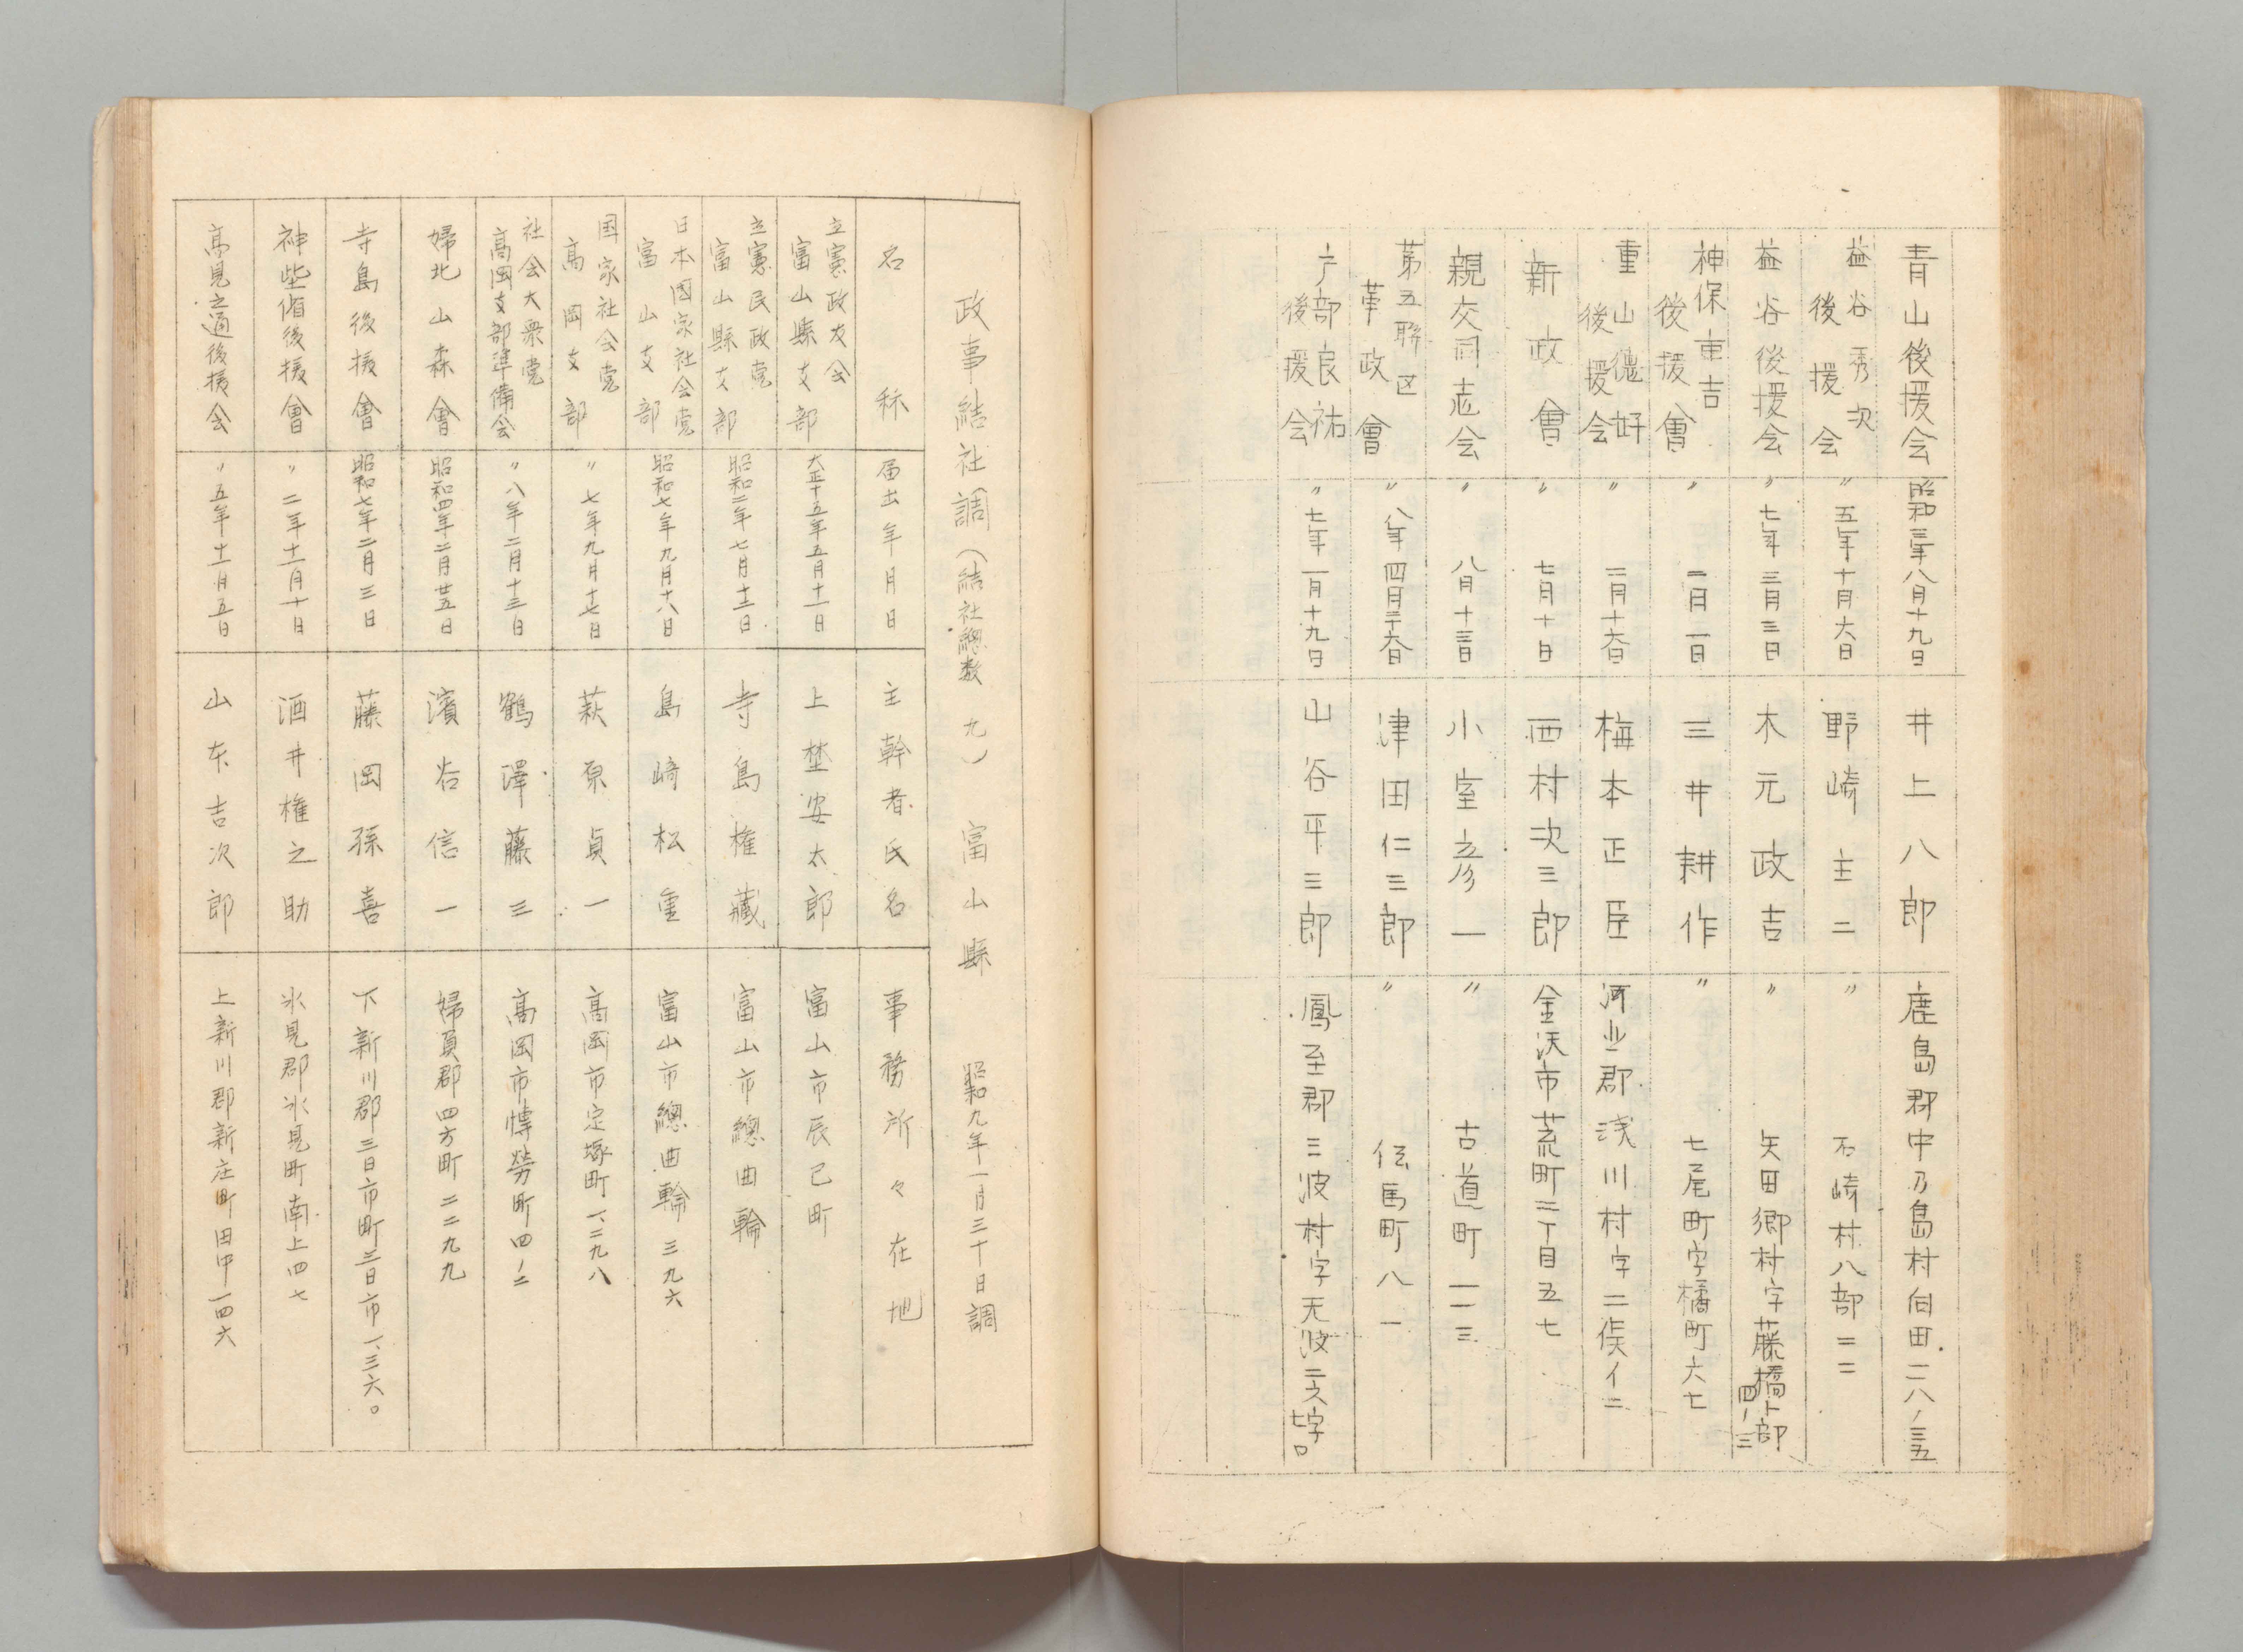 青山後援会 昭和三年八月十九日 井上八郎 鹿島郡中乃島村向田二八ノ三五
益谷秀次後援会 〃五年十月六日 野崎主二 〃石崎村八部二二
益谷後援会 〃七年三月三日 木元政吉 〃矢田郷村字藤橋ト部四ノ三
神保重吉後援會 〃二月一日 三井耕作 〃七尾町字橘町六七
重山徳好後援会 〃二月十六日 梅本正臣 河北郡浅川村字二俣イ二
新政會 〃七月十日 西村次三郎 金沢市荒町二丁目五七
親交同志会 〃八月十三日 小室彦一 〃古道町一一三
第五聯区革政會 〃八年四月二十六日 津田仁三郎 〃伝馬町八一
戸部良祐後援会 〃七年一月十九日 山谷平三郎 鳳至郡三波村字

政事結社調(結社總数 九) 富山縣 昭和九年一月三十日調
名称 届出年月日 主幹者氏名 事務所々在地
立憲政友会富山縣支部 大正十五年五月十一日 上埜安太郎 富山市辰巳町
立憲民政党富山縣支部 昭和二年七月十二日 寺島権藏 富山市總曲輪
日本國家社会党富山支部 昭和七年九月十八日 島崎松 富山市總曲輪三九六
国家社会党高岡支部 〃七年九月十七日 萩原貞一 高岡市定塚町一、二九八
社会大衆党高岡支部準備会 〃八年二月十三日 鶴澤藤三 高岡市博労町四ノ二
婦北山森會 昭和四年二月廿五日 濱谷信一 婦負郡四方町二二九九
寺島後援會 昭和七年二月三日 藤岡孫喜 下新川郡三日市町三日市一、三六〇
神𫝆後援會 〃二年十二月十日 酒井権之助 氷見郡氷見町南上四七
高見之通後援会 〃五年十一月五日 山本吉次郎 上新川郡新庄町田中一四六